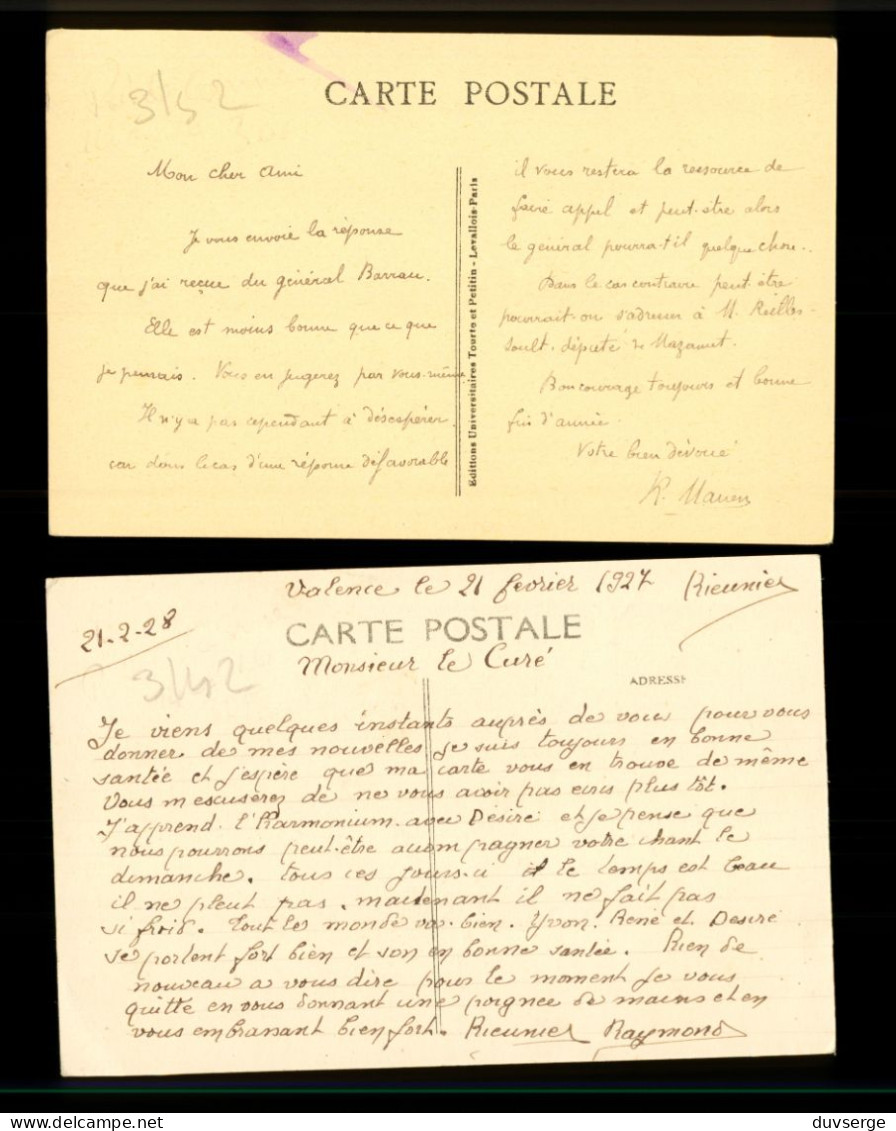 3/42
CARTE POSTALE
Mon cher ami
Je vous envoie la réponse
que j'ai reçue du général Barrau.
Elle est moins bonne que ce que
je pensais. Vous en jugerez par vous-même
Il n'y a pas cependant à désespérer
car dans le cas d'une réponse défavorable
Editions Universitaires Tourte et Petitin - Levallois-Paris
il vous restera la ressource de
faire appel et peut-être alors
le général pourra-t-il quelque chose.
Dans le cas contraire peut-être
pourrait-on s'adresser à M. Reille-
Soult, député de Mazamet.
Bon courage toujours et bonne
fin d'année.
Votre bien dévoué
Valence le 21 fevrier 1927 Rieunier
21-2-28
CARTE POSTALE
3/42
Monsieur le Curé
ADRESSE
Je viens quelques instants auprès de vous pour vous
donner de mes nouvelles je suis toujours en bonne
santée et j'espère que ma carte vous en trouve de même
Vous m'escuserez de ne vous avoir pas ecris plus tôt.
J'apprend l'Harmonium avec Désiré et je pense que
nous pourrons peut-être accompagner votre chant le
dimanche. tous ces jours-ci le temps est beau
il ne pleut pas. maintenant il ne fait pas
si froid. Tout le monde va bien. Yvon. René et Desiré
se portent fort bien et son en bonne santée. Rien de
nouveau a vous dire pour le moment je vous
quitte en vous donnant une poignee de mains et en
vous embrassant bien fort. Rieunier Raymond
duvserge